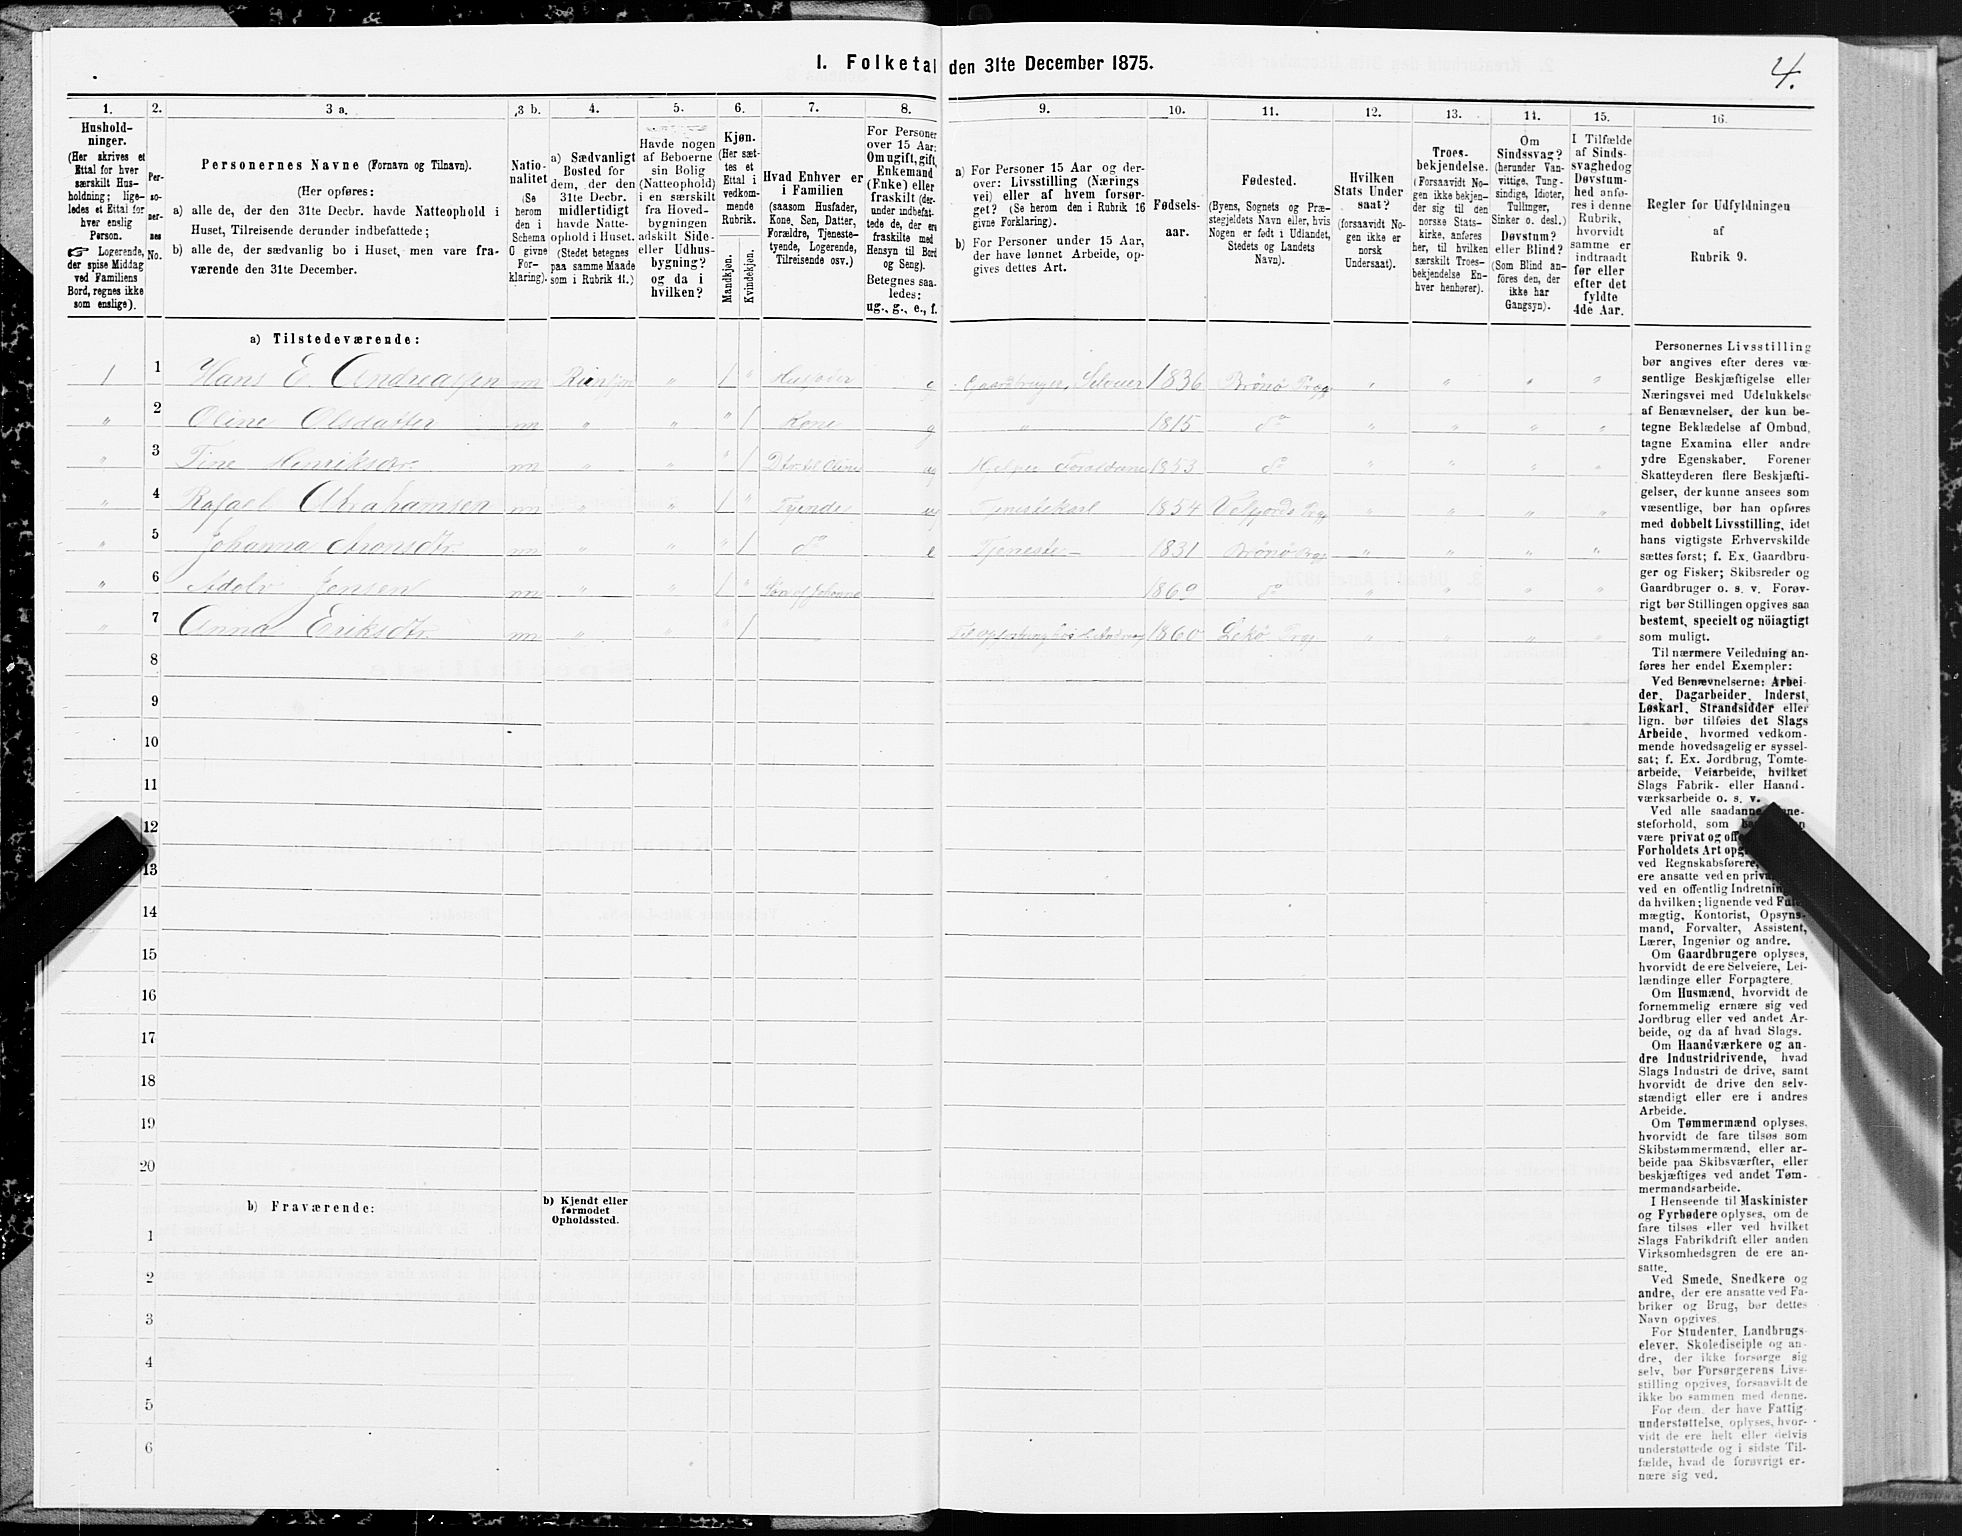 I. Folketal den 31te December 1875.
4.
1.
Hushold-
ninger.
(Her skrives et
Ettal for hver
særskilt Hus-
holdning; lige-
ledes et Ettal for
hver enslig
Person.
☞ Logerende,
der spise Middag
ved Familiens
Bord, regnes ikke
som enslige).
2.
Per-
so-
ner-
nes
No.
3 a.
Personernes Navne (Fornavn og Tilnavn).
(Her opføres:
a) alle de, der den 31te Decbr. havde Natteophold i
Huset, Tilreisende derunder indbefattede;
b) alle de, der sædvanlig bo i Huset, men vare fra-
værende den 31te December.
3 b.
Natio-
nalitet
(Se
herom
den i
Schema
O givne
For-
klaring).
4.
a) Sædvanligt
Bosted for
dem, der den
31te Decbr.
midlertidigt
havde Natte-
ophold i Huset.
(Stedet betegnes
paa samme Maade
som i Rubrik 11.)
5.
Havde nogen
af Beboerne
sin Bolig
(Natteophold)
i en særskilt
fra Hoved-
bygningen
adskilt Side-
eller Udhus-
bygning?
og da i
hvilken?
6.
Kjøn.
(Her sæt-
tes et
Ettal i
vedkom-
mende
Rubrik.
Mandkjøn.
Kvindekjøn.
7.
Hvad Enhver er
i Familien
(saasom Husfader,
Kone, Søn, Datter,
Forældre, Tjeneste-
tyende, Logerende,
Tilreisende osv.)
8.
For Personer
over 15 Aar:
Om ugift, gift,
Enkemand
(Enke) eller
fraskilt (der-
under indbefat-
tede de, der ere
fraskilte med
Hensyn til Bord
og Seng).
Betegnes saa-
ledes:
ug., g., e., f.
9.
a) For Personer 15 Aar og der-
over: Livsstilling (Nærings
vei) eller af hvem forsør-
get? (Se herom den i Rubrik 16
givne Forklaring).
b) For Personer under 15 Aar,
der have lønnet Arbeide, op-
gives dettes Art.
10.
Fødsels-
aar.
11.
Fødested.
(Byens, Sognets og Præ-
stegjeldets Navn eller, hvis
Nogen er født i Udlandet,
Stedets og Landets
Navn).
12.
Hvilken
Stats Under
saat?
(forsaavidt No-
gen ikke er
norsk
Undersaat).
13.
Troes-
bekjendelse.
(Forsaavidt No-
gen ikke bekjen-
der sig til den
norske Stats-
kirke, anføres
her, til hvilken
særskilt Troes-
bekjendelse En-
hver henhører).
14.
Om
Sindssvag?
(herunder Van-
vittige, Tung-
sindige, Idioter,
Tullinger,
Sinker o. desl.)
Døvstum?
eller Blind?
(Som Blind an-
føres den, der
ikke har
Gangsyn).
15.
I Tilfælde
af Sinds-
svaghed og
Døvstum-
hed anfø-
res i denne
Rubrik,
hvorvidt
samme er
indtraadt
før eller
efter det
fyldte
4de Aar.
16.
Regler for Udfyldningen
af
Rubrik 9.
a) Tilstedeværende:
1 1 Hans E. Andreassen nn " 1 " Husfader e Gaardbruger, Selveier 1836 Brønø Prgj " " " "
" 2 Oline Olsdatter nn " " " 1 Kone g " 1815 do " " " "
" 3 Tine Henriksdtr. nn " " " 1 Dtr. til Oline ug Hjelper Forældrene 1853 do " " " "
" 4 Rafael Abrahamsen nn " " 1 " Tjender ug Tjenestekarl 1854 Velfjords Prgj " " " "
" 5 Johanna Aronsdtr. nn " " " 1 do e Tjeneste- 1831 Brønø Prgj " " " "
" 6 Adolv Jensen nn " " 1 " Søn af Johanna 1869 do " " " "
" 7 Anna Eriksdtr. nn " " " 1 Til Opfostring hos 1860 Lekø Prgj " " " "
8
9
10
11
12
13
14
15
16
17
18
19
20
b) Fraværende:
b) Kjendt eller
formodet
Opholdssted.
1
2
3
4
5
6
Personernes Livsstilling
bør angives efter deres væ-
sentlige Beskjæftigelse eller
Næringsvei med Udelukkelse
af Benævnelser, der kun be-
tegne Beklædelse af Ombud,
tagne Examina eller andre
ydre Egenskaber. Forener
Skatteyderen flere Beskjæfti-
gelser, der kunne ansees som
væsentlige, bør han opføres
med dobbelt Livsstilling, idet
hans vigtigste Erhvervskilde
sættes først; f. Ex. Gaardbru-
ger og Fisker; Skibsreder og
Gaardbruger o. s. v. Forøv-
rigt bør Stillingen opgives saa
bestemt, specielt og nöiagtigt
som muligt.
Til nærmere Veiledning an-
føres her endel Exempler:
Ved Benævnelserne: Arbei-
der, Dagarbeider, Inderst,
Løskarl, Strandsidder eller
lign. bør tilføies det Slags
Arbeide, hvormed vedkom-
mende hovedsagelig er syssel-
sat; f. Ex. Jordbrug, Tomte-
arbeide, Veiarbeide, hvilket
Slags Fabrik- eller Haand-
værksarbeide o. s. v.
Ved alle saadanne
steforhold, som
være privat og
Forholdets Art
ved Regnskabsførere,
ere ansatte ved en
ved en offentlig Indretning
da hvilken; lignende ved
mægtig, Kontorist, Opsyns-
mand, Forvalter, Assistent,
Lærer, Ingeniør og andre.
Om Gaardbrugere oplyses,
hvorvidt de ere Selveiere, Lei-
lændinge eller Forpagtere.
Om Husmænd, hvorvidt de
fornemmelig ernære sig ved
Jordbrug eller ved andet Ar-
beide, og da af hvad Slags.
Om Haandværkere og an-
dre Industridrivende, hvad
Slags Industri de drive, samt
hvorvidt de drive den selv-
stændigt eller ere i andres
Arbeide.
Om Tømmermænd oplyses,
hvorvidt de fare tilsøs som
Skibstømmermænd, eller ar-
beide paa Skibsværfter, eller
beskjæftiges ved andet Tøm-
mermandsarbeide.
I Henseende til Maskinister
og Fyrbødere oplyses, om de
fare tilsøs eller ved hvilket
Slags Fabrikdrift eller anden
Virksomhedsgren de ere an-
satte.
Ved Smede, Snedkere og
andre, der ere ansatte ved Fa-
briker og Brug, bør dettes
Navn opgives.
For Studenter, Landbrugs-
elever, Skoledisciple og an-
dre, der ikke forsørge sig
selv, bør Forsørgerens Livs-
stilling opgives, forsaavidt de
ikke bo sammen med denne.
For dem, der have Fattig-
understøttelse, oplyses, hvor-
vidt de ere helt eller delvis
understøttede og i sidste Til-
fælde, hvad de forøvrigt er-
nære sig ved.